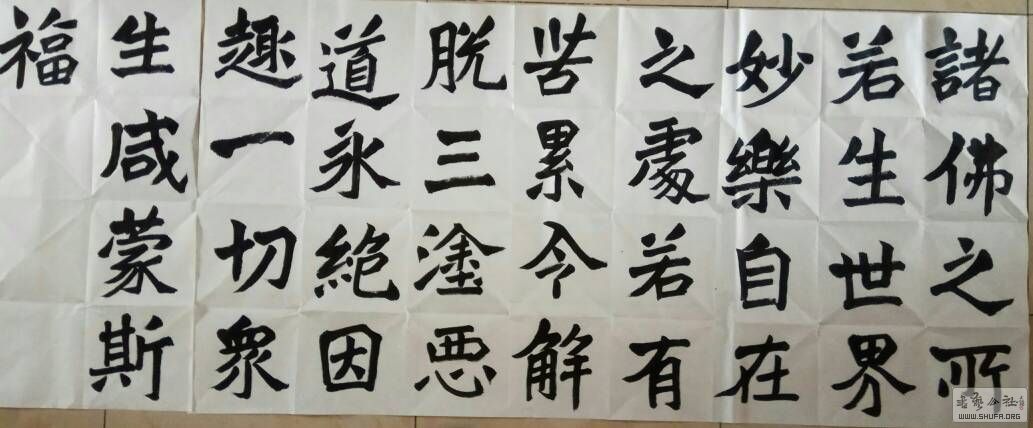 諸佛之所
若生世界
妙樂自在
之處若有
苦累今解
脱三塗悪
道永絶因
趣一切衆
生咸蒙斯
福
WWW.SHUFA.ORG